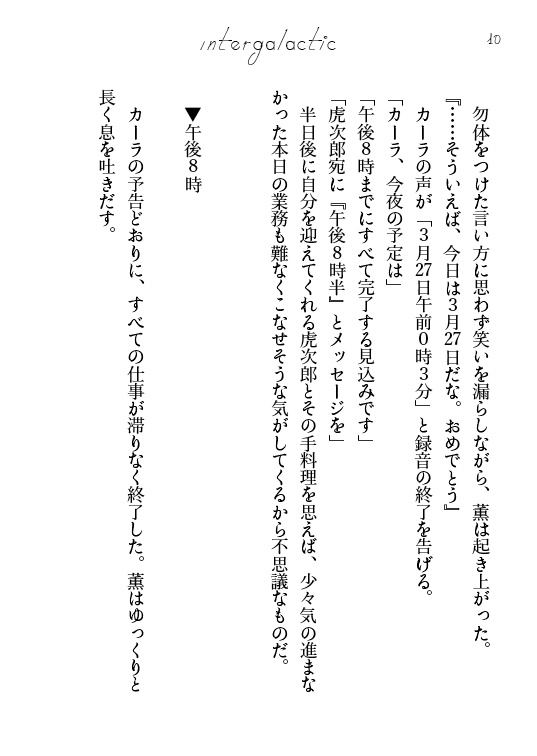 intergalactic
10
勿体をつけた言い方に思わず笑いを漏らしながら、薫は起き上がった。
『……そういえば、今日は３月27日だな。おめでとう』
カーラの声が「３月27日午前０時３分」と録音の終了を告げる。
「カーラ、今夜の予定は」
「午後８時までにすべて完了する見込みです」
「虎次郎宛に『午後８時半』とメッセージを」
半日後に自分を迎えてくれる虎次郎とその手料理を思えば、少々気の進まな
かった本日の業務も難なくこなせそうな気がしてくるから不思議なものだ。
▼午後８時
カーラの予告どおりに、すべての仕事が滞りなく終了した。薫はゆっくりと
長く息を吐きだす。